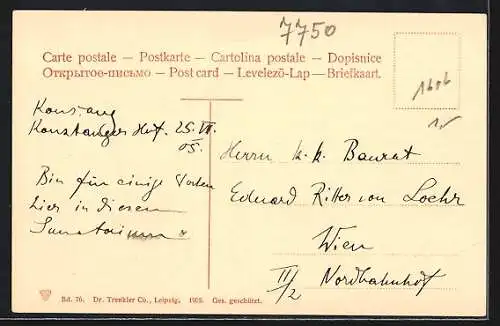 7750
Carte postale — Postkarte — Cartolina postale — Dopisnice
Открытое-письмо — Post card — Levelező-Lap — Briefkaart.
Konstanz
Konstanzer Hof. 25. VI.
05.
Bin für einige Wochen
hier in diesem
Sanatorium
Herrn k. k. Baurat
Eduard Ritter von Loehr
Wien
II/2 Nordbahnhof
Bd. 76. Dr. Trenkler Co., Leipzig. 1905. Ges. geschützt.